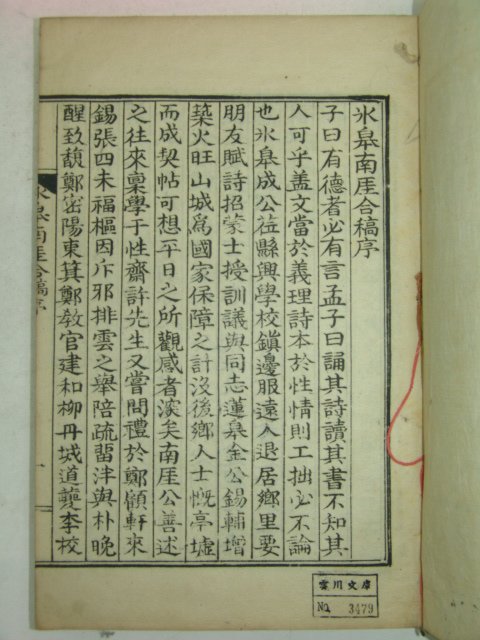 氷皋南厓合稿序
子曰有德者必有言孟子曰誦其詩讀其書不知其
人可乎盖文當於義理詩本於性情則工拙必不論
也氷皋成公莅縣興學校鎭邊服遠人退居鄉里要
朋友賦詩招蒙士授訓議與同志蓮皋金公錫輔增
築火旺山城爲國家保障之計沒後鄉人士慨亭墟
而成契帖可想平日之所觀感者深矣南厓公善述
之往來稟學于性齋許先生又嘗問禮於鄭顧軒來
錫張四未福樞因斥邪排雲之擧陪疏留泮與朴晩
醒致馥鄭密陽東箕鄭敎官建和柳丹城道夔李校
氷皋南厓合稿序
雲川文庫
No. 3479